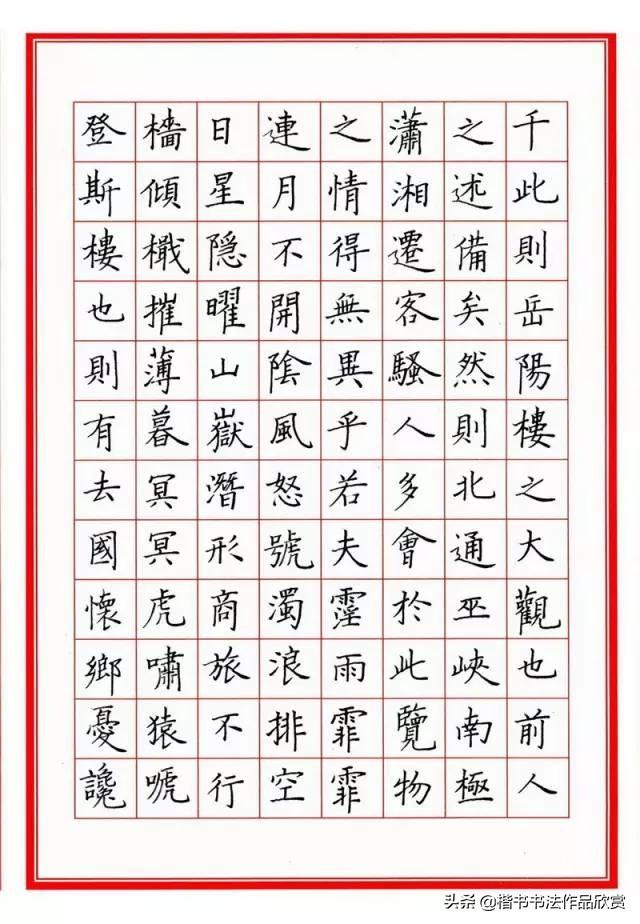 千此則岳陽樓之大觀也前人
之述備矣然則北通巫峽南極
瀟湘遷客騷人多會於此覽物
之情得無異乎若夫霪雨霏霏
連月不開陰風怒號濁浪排空
日星隱曜山嶽潛形商旅不行
檣傾檝摧薄暮冥冥虎嘯猿嗁
登斯樓也則有去國懷鄉憂讒
头条@楷书书法作品欣赏